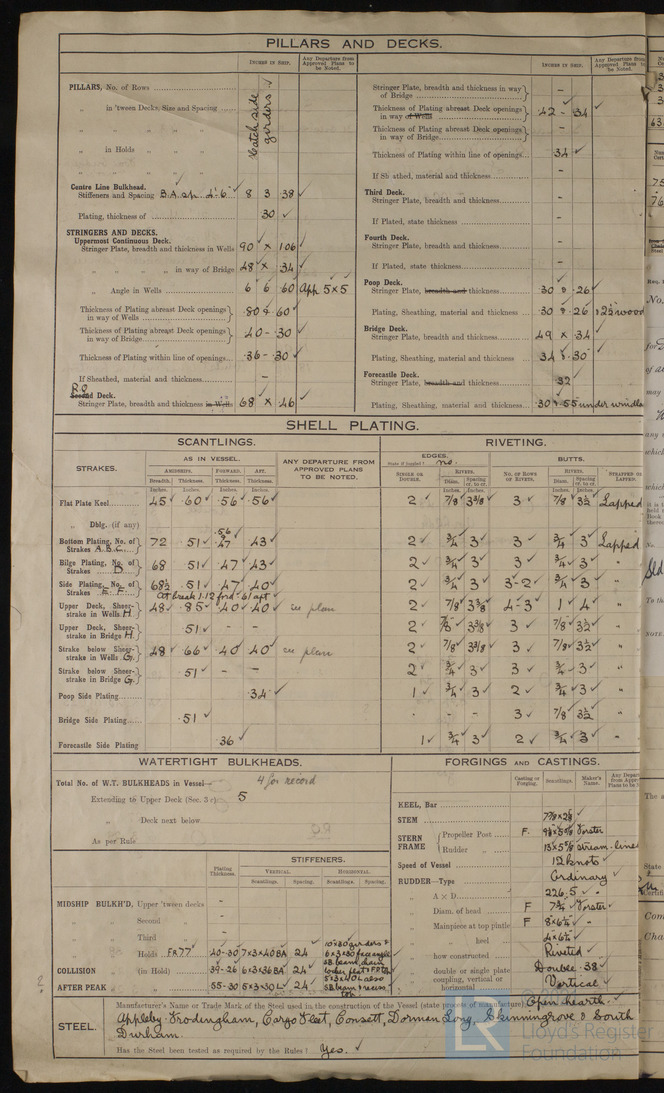 PILLARS AND DECKS.
INCHES IN SHIP.
Any Departure from Approved Plans to be Noted.
PILLARS, No. of Rows
Hatch side girders
„ in 'tween Decks, Size and Spacing
„ in Holds
Centre Line Bulkhead.
Stiffeners and Spacing B.A. sp. 4'-6" 8 3 38
Plating, thickness of 30
STRINGERS AND DECKS.
Uppermost Continuous Deck.
Stringer Plate, breadth and thickness in Wells 90 × 106
„ „ „ „ in way of Bridge 48 × 34
„ Angle in Wells 6 6 60 App 5×5
Thickness of Plating abreast Deck openings in way of Wells .80 & 60
Thickness of Plating abreast Deck openings in way of Bridge 40 - 30
Thickness of Plating within line of openings .36 - 30
If Sheathed, material and thickness –
R.Q. Second Deck.
Stringer Plate, breadth and thickness in Wells 68 × .46
INCHES IN SHIP.
Any Departure from Approved Plans to be Noted.
Stringer Plate, breadth and thickness in way of Bridge –
Thickness of Plating abreast Deck openings in way of Wells 42 - 34
Thickness of Plating abreast Deck openings in way of Bridge –
Thickness of Plating within line of openings 34
If Sheathed, material and thickness –
Third Deck.
Stringer Plate, breadth and thickness –
If Plated, state thickness –
Fourth Deck.
Stringer Plate, breadth and thickness –
If Plated, state thickness –
Poop Deck.
Stringer Plate, breadth and thickness .30 & .26
Plating, Sheathing, material and thickness .30 & .26 & 2½ wood
Bridge Deck.
Stringer Plate, breadth and thickness 49 × 34
Plating, Sheathing, material and thickness 34 & .30
Forecastle Deck.
Stringer Plate, breadth and thickness 32
Plating, Sheathing, material and thickness .30 & .55 under windla
SHELL PLATING.
SCANTLINGS.
RIVETING.
STRAKES.
AS IN VESSEL.
AMIDSHIPS. FORWARD. AFT.
Breadth. Thickness. Thickness. Thickness.
ANY DEPARTURE FROM APPROVED PLANS TO BE NOTED.
EDGES.
State if joggled? no.
SINGLE OR DOUBLE.
RIVETS.
Diam. Spacing cr. to cr.
BUTTS.
NO. OF ROWS OF RIVETS.
RIVETS.
Diam. Spacing cr. to cr.
STRAPPED OR LAPPED.
Inches. Inches. Inches. Inches. Inches. Inches. Inches. Inches.
Flat Plate Keel 45 .60 .56 .56 2 7/8 3 3/8 3 7/8 3½ Lapped
„ Dblg. (if any)
Bottom Plating, No. of Strakes A.B.C. 72 .51 .56 & .47 .43 2 ¾ 3 3 ¾ 3 Lapped
Bilge Plating, No. of Strakes D. 68 .51 .47 .43 2 ¾ 3 3 ¾ 3 „
Side Plating, No. of Strakes E. F. 68½ .51 .47 .40 2 ¾ 3 3-2 ¾ 3 „
At break 1.12 ford .61 aft
Upper Deck, Sheerstrake in Wells H. 48 .85 .40 .40 see plan 2 7/8 3 3/8 4-3 1 4 „
Upper Deck, Sheerstrake in Bridge H. .51 – 2 7/8 3 3/8 3 7/8 3½ „
Strake below Sheerstrake in Wells G. 48 .66 .40 .40 see plan 2 7/8 3 3/8 3 7/8 3½ „
Strake below Sheerstrake in Bridge G. .51 – – 2 ¾ 3 3 ¾ 3 „
Poop Side Plating .34 1 ¾ 3 2 ¾ 3 „
Bridge Side Plating .51 - - - 3 7/8 3½ „
Forecastle Side Plating .36 1 ¾ 3 2 ¾ 3 „
WATERTIGHT BULKHEADS.
Total No. of W.T. BULKHEADS in Vessel— 4 for record
Extending to Upper Deck (Sec. 3 ) 5
„ Deck next below
As per Rule
Plating Thickness.
STIFFENERS.
VERTICAL. HORIZONTAL.
Scantlings. Spacing. Scantlings. Spacing.
MIDSHIP BULKH'D, Upper 'tween decks –
„ Second „ –
„ Third „ –
„ Holds FR 77 40-30 7×3×40 BA 24
COLLISION „ (in Hold) 39-26 6×3×36 BA 24
AFTER PEAK „ „ 55-30 5×3×30 L 24
FORGINGS AND CASTINGS.
Casting or Forging. Scantlings. Maker's Name. Any Depart from Appr Plans to be
KEEL, Bar
STEM 7 7/8 × 2
STERN FRAME Propeller Post F. Forster
Rudder „ stream-line
Speed of Vessel 12 knots
RUDDER—Type Ordinary
„ A × D 226.5
„ Diam. of head F 7¾ Forster
„ Mainpiece at top pintle F
„ „ heel
„ how constructed Riveted
„ double or single plate Double .38
„ coupling, vertical or horizontal Vertical
STEEL.
Manufacturer's Name or Trade Mark of the Steel used in the construction of the Vessel (state process of manufacture) Open hearth.
Appleby-Frodingham, Cargo Fleet, Consett, Dorman Long, Skinningrove & South Durham.
Has the Steel been tested as required by the Rules? Yes.
LR Lloyd's Register Foundation